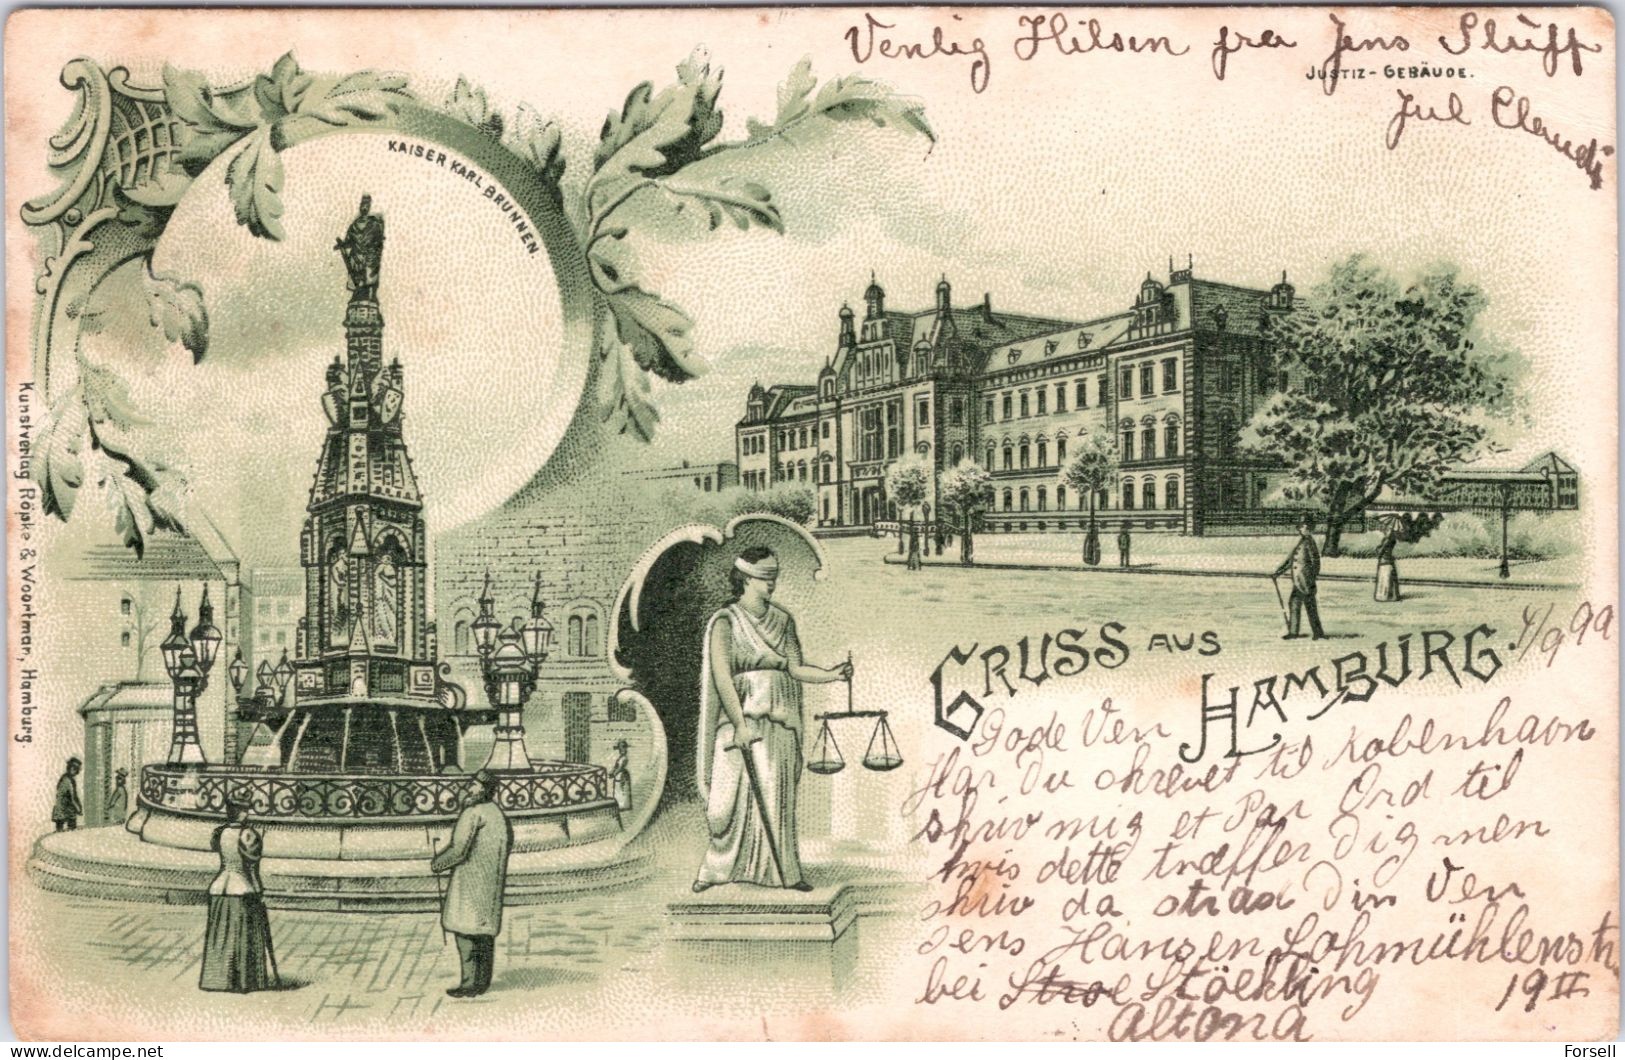 Venlig Hilsen fra Jens
JUSTIZ-GEBÄUDE.
Jul
KAISER KARL BRUNNEN.
Kunstverlag Röpke & Woortman, Hamburg.
GRUSS AUS
HAMBURG. 4/9 99
Gode Ven
Har Du skrevet til Kobenhavn
skriv mig et Par Ord til
hvis dette træffer Dig men
skriv da strax Din Ven
Jens Hansen Lohmühlenstr
bei Stöckling 19 II
Altona
Forsell
delcampe.net